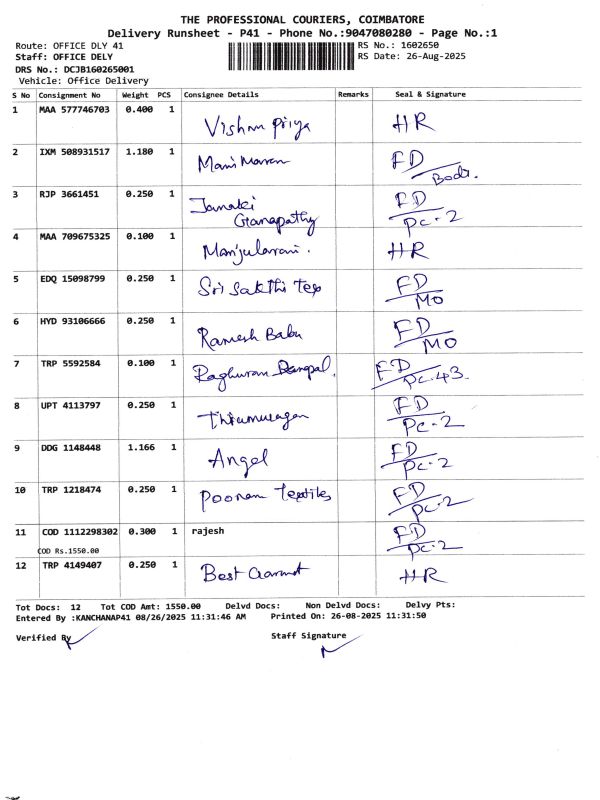 THE PROFESSIONAL COURIERS, COIMBATORE
Delivery Runsheet - P41 - Phone No.:9047080280 - Page No.:1
Route: OFFICE DLY 41 RS No.: 1602650
Staff: OFFICE DELY RS Date: 26-Aug-2025
DRS No.: DCJB160265001
Vehicle: Office Delivery
S No Consignment No Weight PCS Consignee Details Remarks Seal & Signature
1 MAA 577746703 0.400 1 Vishnu Priya HR
2 IXM 508931517 1.180 1 Mani Maran FD
Bodi.
3 RJP 3661451 0.250 1 Janaki FD
Ganapathy PC-2
4 MAA 709675325 0.100 1 Manjularani. HR
5 EDQ 15098799 0.250 1 Sri Sakthi Tex FD
MO
6 HYD 93106666 0.250 1 Ramesh Babu FD
MO
7 TRP 5592584 0.100 1 Raghuram FD
PC-43.
8 UPT 4113797 0.250 1 Thirumurugan FD
PC-2
9 DDG 1148448 1.166 1 Angel FD
PC-2
10 TRP 1218474 0.250 1 Poonam Textiles FD
PC-2
11 COD 1112298302 0.300 1 rajesh FD
COD Rs.1550.00 PC-2
12 TRP 4149407 0.250 1 Best Garment HR
Tot Docs: 12 Tot COD Amt: 1550.00 Delvd Docs: Non Delvd Docs: Delvy Pts:
Entered By :KANCHANAP41 08/26/2025 11:31:46 AM Printed On: 26-08-2025 11:31:50
Verified By Staff Signature